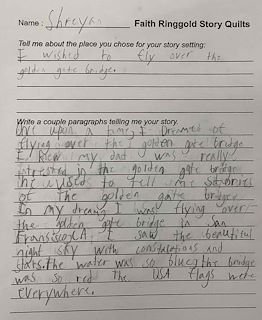 Name: Shreyan Faith Ringgold Story Quilts
Tell me about the place you chose for your story setting:
I wished to fly over the
golden gate bridge.
Write a couple paragraphs telling me your story.
upon a time, I Dreamed of
flying over the golden gate bridge
I knew my dad was really
intrested in the golden gate bridge
he used to tell me stories
of The golden gate bridge
In my dream I was flying over
the golden gate bridge in San
Fransisco, CA I saw the beautiful
night sky with constalations and
stars. the water was so blue the bridge
was so red the USA flags were
everywhere.